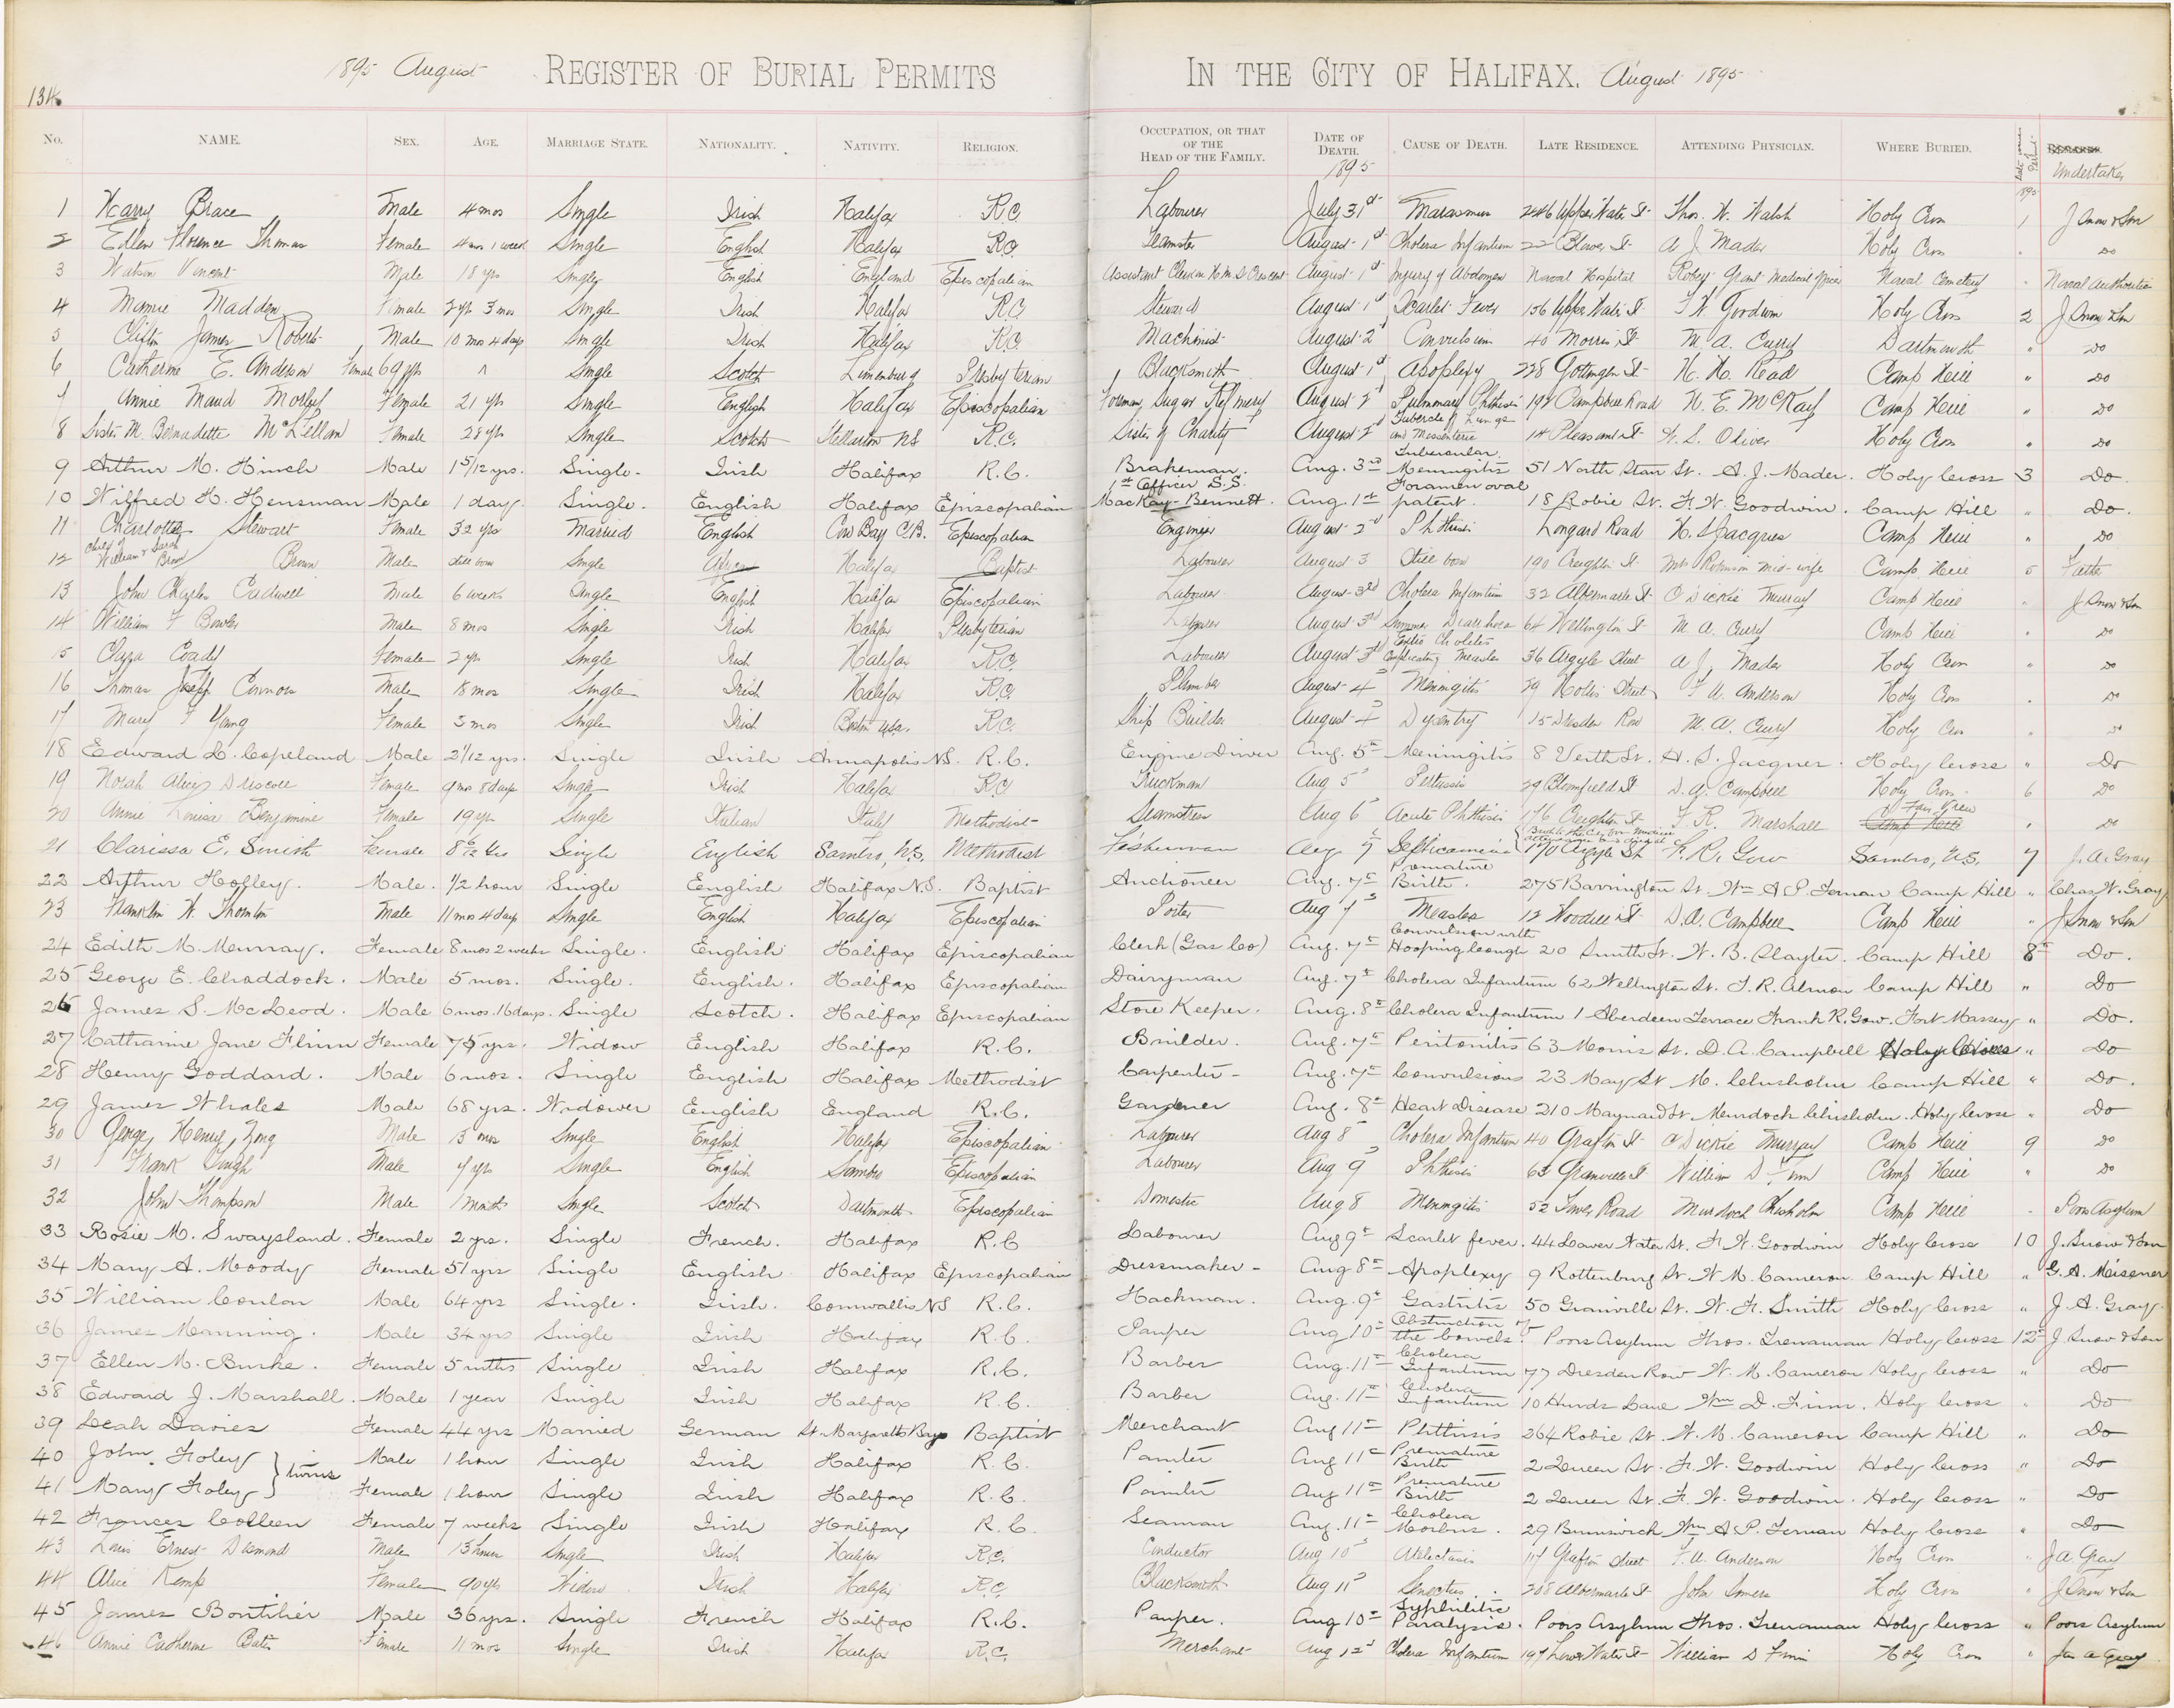 134
1895 August REGISTER OF BURIAL PERMITS IN THE CITY OF HALIFAX. August 1895
No. NAME. SEX. AGE. MARRIAGE STATE. NATIONALITY. NATIVITY. RELIGION. OCCUPATION, OR THAT OF THE HEAD OF THE FAMILY. DATE OF DEATH. 1895 CAUSE OF DEATH. LATE RESIDENCE. ATTENDING PHYSICIAN. WHERE BURIED. 1895 Undertaker
1 Harry Brace Male 4 mos Single Irish Halifax R.C. Labourer July 31st Marasmus 246 Upper Water St Thos. W. Walsh Holy Cross 1 J Snow & Son
2 Edlen Florence Thomas Female 4 mos 1 week Single English Halifax R.C. Teamster August 1st Cholera Infantum 22 Blower St A J Mader Holy Cross " Do
3 Watson Vincent Male 18 yrs Single English England Episcopalian Assistant Clerk in H.M.S. Crescent August 1st Injury of Abdomen Naval Hospital Robey Grant Medical Officer Naval Cemetery " Naval Authorities
4 Mamie Madden Female 2 yrs 3 mos Single Irish Halifax R.C. Steward August 1st Scarlet Fever 156 Upper Water St F W Goodwin Holy Cross 2 J Snow & Son
5 Clifton James Roberts Male 10 mos 4 days Single Irish Halifax R.C. Machinist August 2d Convulsions 40 Morris St M. A. Curry Dartmouth " Do
6 Catherine E. Anderson Female 69 yrs " Single Scotch Lunenburg Presbyterian Blacksmith August 1st Apoplexy 228 Gottingen St H. H. Read Camp Hill " Do
7 Annie Maud Morley Female 21 yrs Single English Halifax Episcopalian Foreman Sugar Refinery August 2d Pulmonary Phthisis 192 Campbell Road N. E. McKay Camp Hill " Do
8 Sister M. Bernadette McLellan Female 28 yrs Single Scotch Stellarton NS R.C. Sister of Charity August 2d Tubercle of Lungs and Mesenteric 14 Pleasant St W. S. Oliver Holy Cross " Do
9 Arthur M. Hinch Male 1 5/12 yrs. Single. Irish Halifax R.C. Brakeman. Aug. 3rd Tubercular Meningitis 51 North Starr St. A. J. Mader. Holy Cross 3 Do.
10 Wilfred H. Hensman Male 1 day. Single. English Halifax Episcopalian 1st Officer S.S. MacKay-Bennett. Aug. 1st Foramen oval patent. 18 Robie St. F. W. Goodwin. Camp Hill " Do.
11 Charlotte Stewart Female 32 yrs Married English Cow Bay C.B. Episcopalian Engineer August 2nd Phthisis Longard Road H. S. Jacques Camp Hill " Do
12 Child of William & Sarah Brown Brown Male still born Single African Halifax Baptist Labourer August 3 Still born 190 Creighton St Mrs Robinson mid-wife Camp Hill 5 Father
13 John Charles Cadwell Male 6 weeks Single English Halifax Episcopalian Labourer August 3rd Cholera Infantum 32 Albermarle St O Dickie Murray Camp Hill " J Snow & Son
14 William F Bowler Male 8 mos Single Irish Halifax Presbyterian Labourer August 3rd Summer Diarrhoea 64 Wellington St M. A. Curry Camp Hill " Do
15 Clara Coady Female 2 yrs Single Irish Halifax R.C. Labourer August 3rd Complicating Measles 36 Argyle Street A J. Mader Holy Cross " Do
16 Thomas Joseph Connors Male 18 mos Single Irish Halifax R.C. Plumber August 4 Meningitis 29 Hollis Street F. U. Anderson Holy Cross " Do
17 Mary F Young Female 3 mos Single Irish Boston USA. R.C. Ship Builder August 4 Dysentry 15 Dresden Row M. A. Curry Holy Cross " Do
18 Edward L. Copeland Male 2 1/12 yrs. Single Irish Annapolis N.S. R.C. Engine Driver Aug. 5th Meningitis 8 Veith St. H. S. Jacques. Holy Cross " Do
19 Norah Alice Driscoll Female 9 mos 8 days Single Irish Halifax R.C. Truckman Aug 5 Pertussis 29 Bloomfield St D. A. Campbell Holy Cross 6 Do
20 Annie Louisa Benjamine Female 19 yrs Single Italian Italy Methodist Seamstress Aug 6 Acute Phthisis 176 Creighton St F. R. Marshall Camp Hill Fair View " Do
21 Clarissa E. Smith Female 8 6/12 yrs Single English Sambro, N.S. Methodist Fisherman Aug 7 Septicaemia 170 Argyle St. F. R. Gow Sambro, N.S. 7 J. A. Gray
22 Arthur Hofley. Male. 1/2 hour Single English Halifax N.S. Baptist Auctioneer Aug. 7th Premature Birth. 275 Barrington St. Wm A P Fernan Camp Hill " Chas W. Gray
23 Franklin W. Thornton Male 11 mos 4 days Single English Halifax Episcopalian Porter Aug 7 Measles 12 Woodill St D. A. Campbell Camp Hill " J Snow & Son
24 Edith M. Murray. Female 8 mos 2 weeks Single. English Halifax Episcopalian Clerk (Gas Co) Aug. 7th Convulsion with Hooping Cough 20 Smith St. W. B. Slayter. Camp Hill 8th Do.
25 George E. Chaddock. Male 5 mos. Single. English. Halifax Episcopalian Dairyman Aug. 7th Cholera Infantum 62 Wellington St. T. R. Almon Camp Hill " Do
26 James S. McLeod. Male 6 mos. 16 days. Single Scotch. Halifax Episcopalian Store Keeper. Aug. 8th Cholera Infantum 1 Aberdeen Terrace Frank R. Gow. Fort Massey " Do.
27 Catharine Jane Flinn Female 75 yrs. Widow English Halifax R.C. Builder. Aug. 7th Peritonitis 63 Morris St. D. A. Campbell Holy Cross " Do
28 Henry Goddard. Male 6 mos. Single English Halifax Methodist Carpenter Aug. 7th Convulsions 23 May St M. Chisholm Camp Hill " Do.
29 James Whales Male 68 yrs. Widower English England R.C. Gardener Aug. 8th Heart Disease 210 Maynard St Murdock Chisholm. Holy Cross " Do
30 George Henry Zong Male 3 mos Single English Halifax Episcopalian Labourer Aug 8 Cholera Infantum 40 Grafton St O Dickie Murray Camp Hill 9 Do
31 Frank Tough Male 4 yrs Single English Sambro Episcopalian Labourer Aug 9 Phthisis 63 Granville St William D Finn Camp Hill " Do
32 John Thompson Male 1 month Single Scotch Dartmouth Episcopalian Domestic Aug 8 Meningitis 52 Tower Road Murdoch Chisholm Camp Hill " Poors Asylum
33 Rosie M. Swaysland. Female 2 yrs. Single French. Halifax R.C Labourer Aug 9th Scarlet fever. 44 Lower Water St. F. W. Goodwin Holy Cross 10 J. Snow & Son
34 Mary A. Moody Female 51 yrs Single English Halifax Episcopalian Dressmaker Aug 8th Apoplexy 9 Rottenburg St. W. M. Cameron Camp Hill " G. A. Meisener
35 William Conlon Male 64 yrs Single. Irish. Cornwallis NS R.C. Hackman. Aug. 9th Gastritis 50 Granville St. W. F. Smith Holy Cross " J. A. Gray.
36 James Manning. Male 34 yrs Single Irish Halifax R.C. Pauper Aug 10th Obstruction of the bowels. Poors Asylum Thos. Trenaman Holy Cross 12th J. Snow & Son
37 Ellen M. Burke. Female 5 mths Single Irish Halifax R.C. Barber Aug. 11th Cholera Infantum 77 Dresden Row W. M. Cameron Holy Cross " Do
38 Edward J. Marshall. Male 1 year Single Irish Halifax R.C. Barber Aug. 11th Cholera Infantum 10 Hurds Lane Wm D. Finn. Holy Cross " Do
39 Leah Davies Female 44 yrs Married German St Margaretts Bay Baptist Merchant Aug 11th Phthisis 264 Robie St. W. M. Cameron Camp Hill " Do
40 John Foley } twins Male 1 hour Single Irish Halifax R.C. Painter Aug 11th Premature Birth 2 Queen St. F. W. Goodwin Holy Cross " Do
41 Mary Foley } Female 1 hour Single Irish Halifax R.C. Painter Aug 11th Premature Birth 2 Queen St. F. W. Goodwin. Holy Cross " Do
42 Frances Colleen Female 7 weeks Single Irish Halifax R.C. Seaman Aug. 11th Cholera Morbus. 29 Brunswick Wm A P. Fernan Holy Cross " Do
43 Louis Ernest Diamond Male 13 hours Single Irish Halifax R.C. Conductor Aug 10 Atelectasis 117 Grafton Street F. U. Anderson Holy Cross " J A. Gray
44 Alice Kemp Female 90 yrs Widow Irish Halifax R.C. Blacksmith Aug 11 Senectus 208 Albermarle St John Somers Holy Cross " J Snow & Son
45 James Bontilier Male 36 yrs. Single French Halifax R.C. Pauper. Aug 10th Syphilitic Paralysis. Poors Asylum Thos. Trenaman Holy Cross " Poors Asylum
46 Annie Catherine Bates Female 11 mos Single Irish Halifax R.C. Merchant Aug 12 Cholera Infantum 197 Lower Water St William D Finn Holy Cross " Jas A Gray